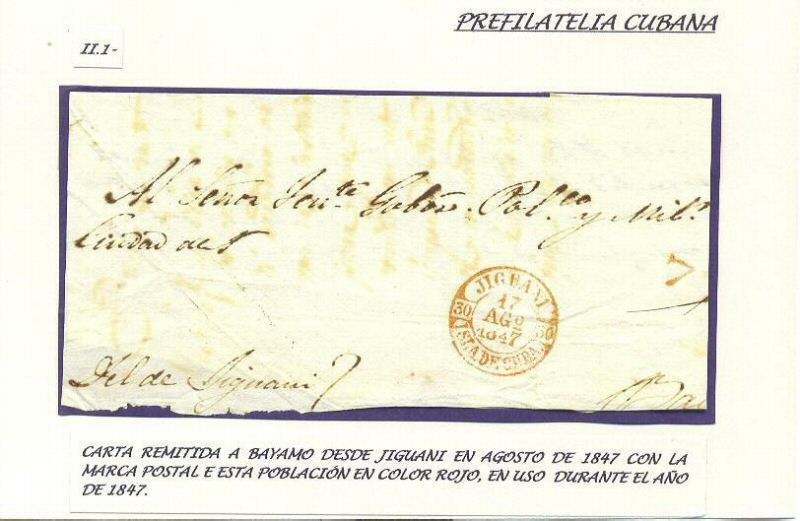 PREFILATELIA CUBANA
II.1-
Al Señor Ten.te Gobor. Pol.co y Mil.r
Ciudad de
JIGUANI
17
AGO
1847
30 30
ISLA DE CUBA
Del de Jiguani
Ba
CARTA REMITIDA A BAYAMO DESDE JIGUANI EN AGOSTO DE 1847 CON LA
MARCA POSTAL E ESTA POBLACIÓN EN COLOR ROJO, EN USO DURANTE EL AÑO
DE 1847.